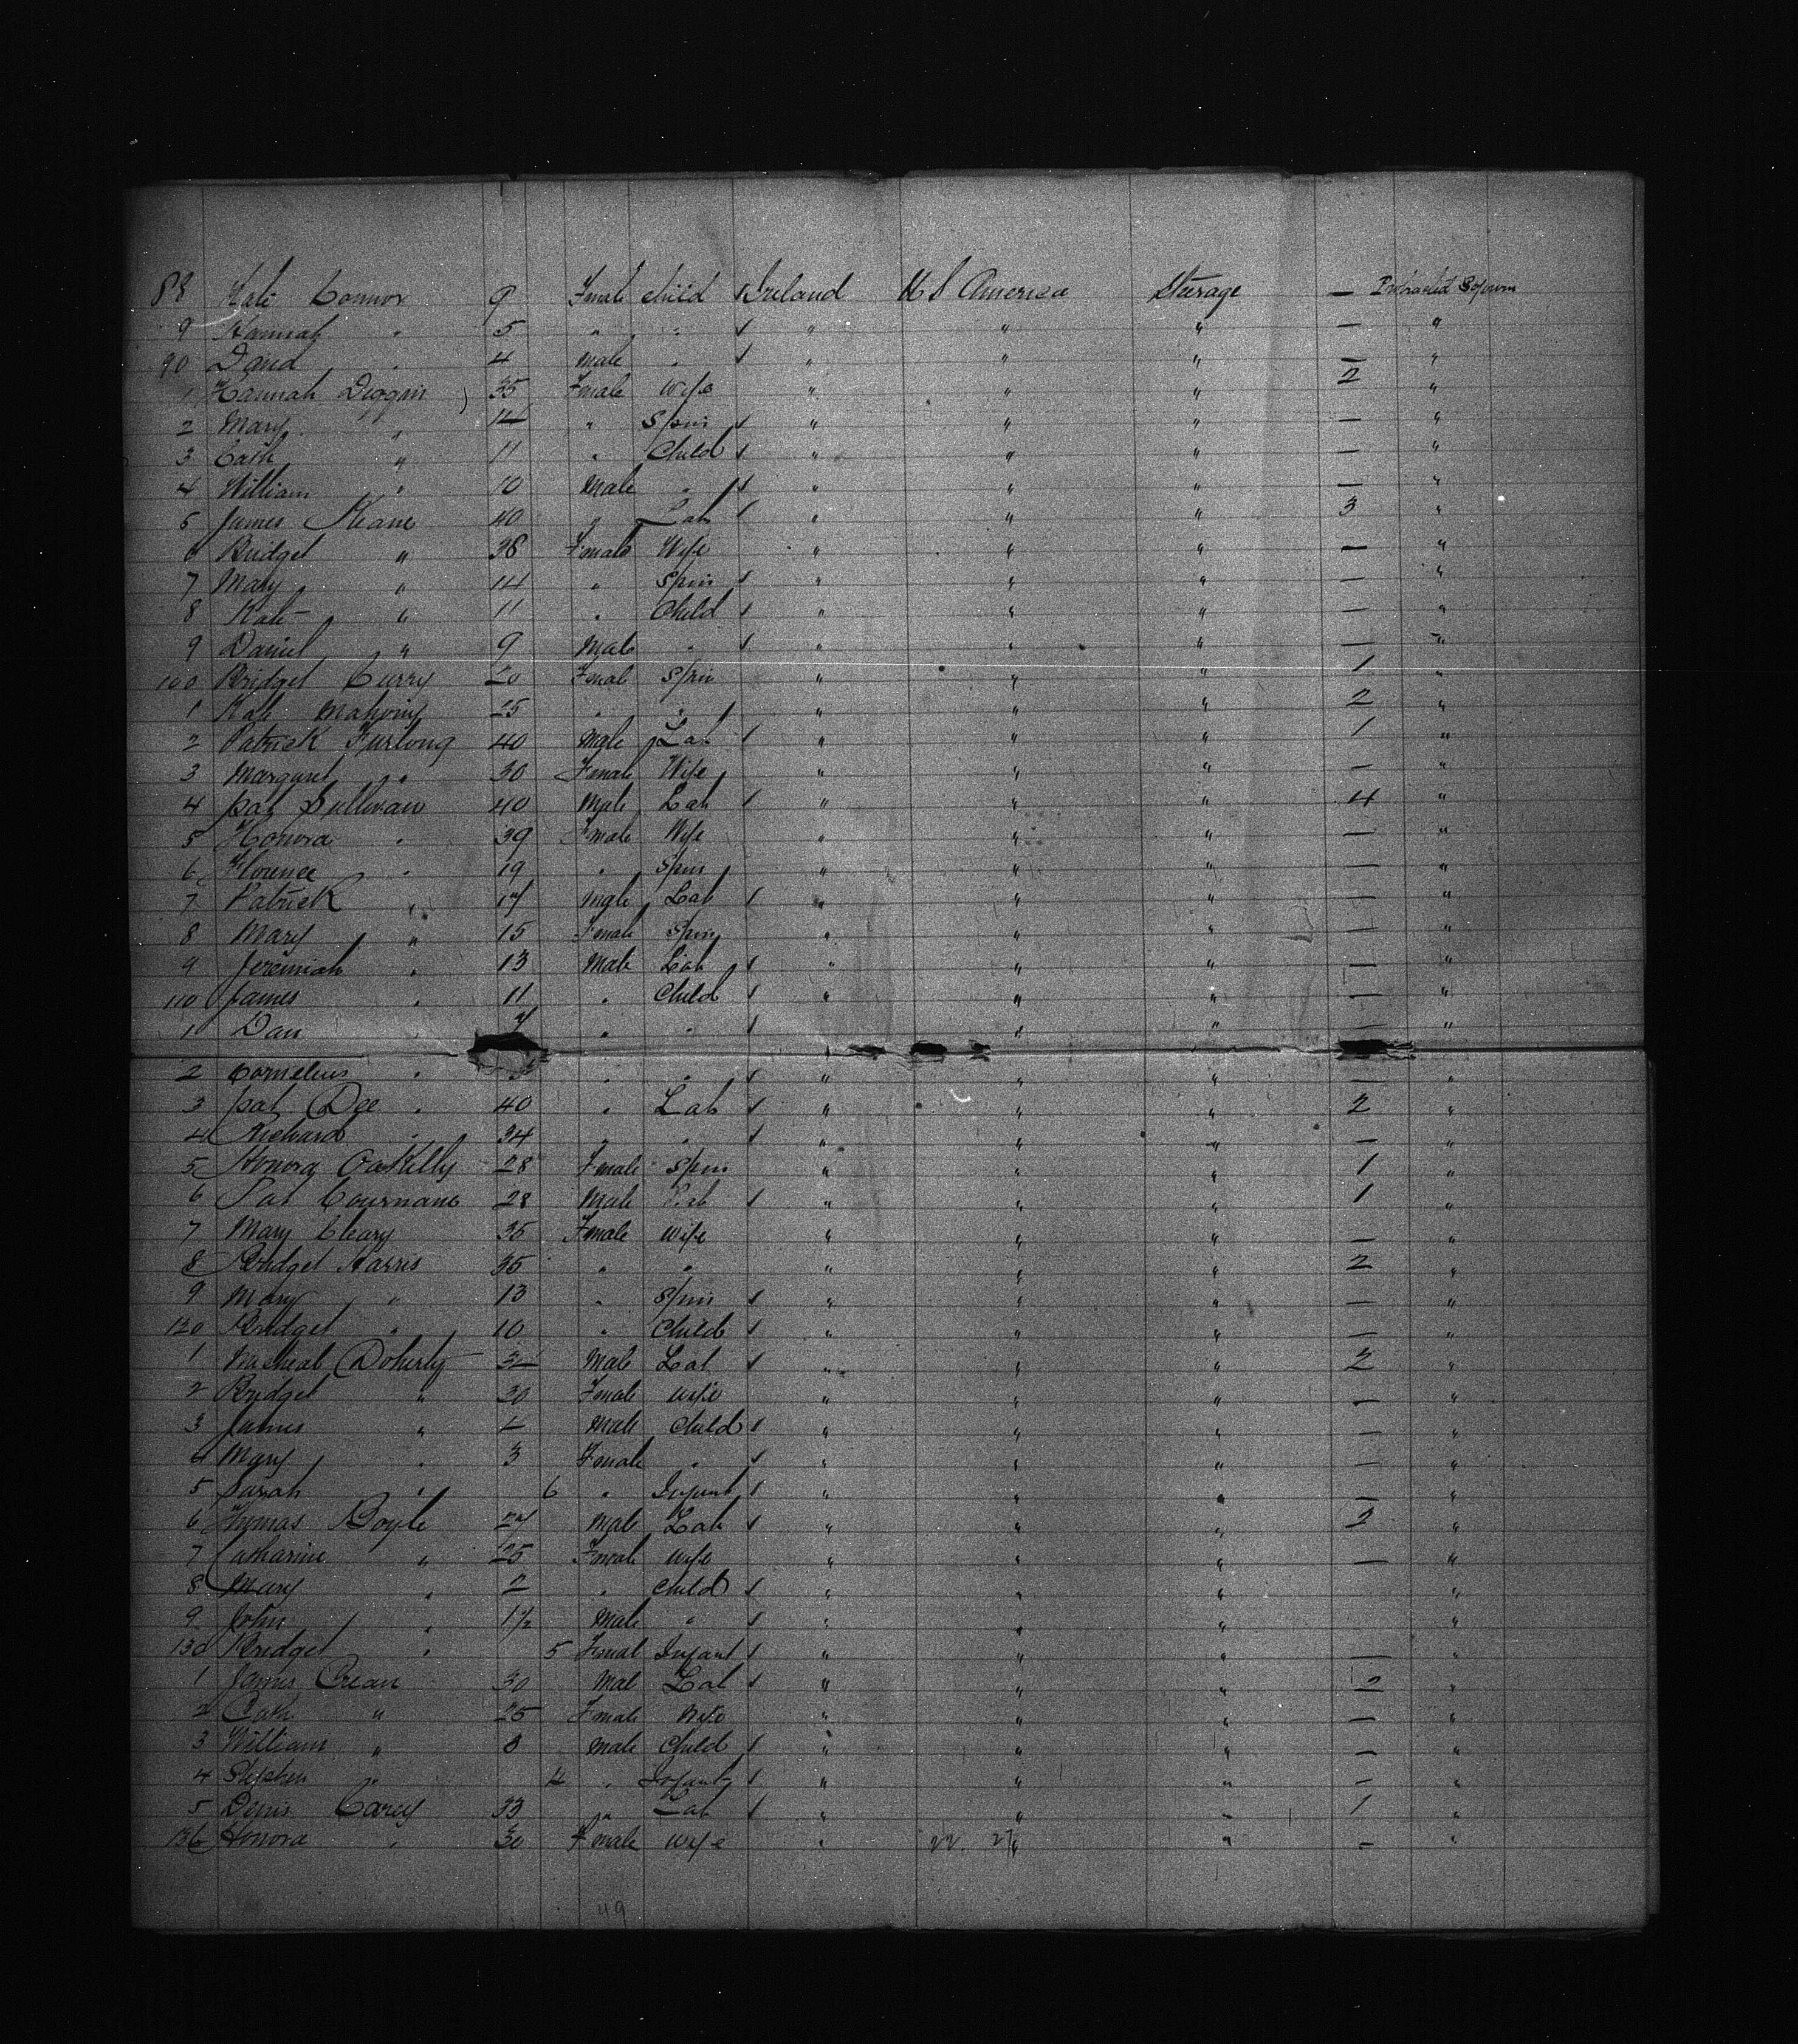 88 Kate Connor 9 Female child Ireland U S America Steerage — Protracted Sojourn
9 Hannah " 5 " " " " " — "
90 David " 4 male " " " " — "
1 Hannah Diggin 35 Female Wife " " " 2 "
2 Mary " " Spin " " " — "
3 Cath " 11 " Child " " " — "
4 William " 10 Male " " " " — "
5 James Keane 40 " Lab " " " 3 "
6 Bridget " 38 Female Wife " " " — "
7 Mary " 14 " Spin " " " — "
8 Kate " 11 " Child " " " — "
9 Daniel " 9 Male " " " " — "
100 Bridget Curry 20 Female Spin " " " 1 "
1 Kate Mahony 25 " " " " " 2 "
2 Patrick Furlong 40 Male Lab " " " 1 "
3 Margaret " 30 Female Wife " " " — "
4 Pat Sullivan 40 Male Lab " " " 4 "
5 Honora " 39 Female Wife " " " — "
6 Florence " 19 " Spin " " " — "
7 Patrick " 17 Male Lab " " " — "
8 Mary " 15 Female Spin " " " — "
9 Jeremiah " 13 Male Lab " " " — "
110 James " 11 " Child " " " — "
1 Dan " 7 " " " " — "
2 Cornelius " " " " " " — "
3 Pat Dee " 40 " Lab " " " 2 "
4 Richard " 34 " " " " " — "
5 Honora OaKelly 28 Female Spin " " " 1 "
6 Pat Cournane 28 Male Lab " " " 1 "
7 Mary Cleary 35 Female Wife " " " — "
8 Bridget Harris 35 " " " " " 2 "
9 Mary " 13 " Spin " " " — "
120 Bridget " 10 " Child " " " — "
1 Micheal Doherty Male Lab " " " 2 "
2 Bridget " 30 Female wife " " " — "
3 James " 4 Male Child " " " — "
4 Mary " 3 Female " " " " — "
5 Sarah " 6 " Infant " " " — "
6 Thomas Boyle 27 Male Lab " " " 2 "
7 Catharine " 25 Female wife " " " — "
8 Mary " 2 " Child " " " — "
9 John " 1½ Male " " " " — "
130 Bridget " 5 Female Infant " " " — "
1 James Crean 30 Male Lab " " " 2 "
2 Cath " 25 Female Wife " " " — "
3 William " 3 male Child " " " — "
4 Stephen " " Infant " " " — "
5 Denis Carey 33 " Lab " " " 1 "
136 Honora " 30 Female wife " " " — "
49